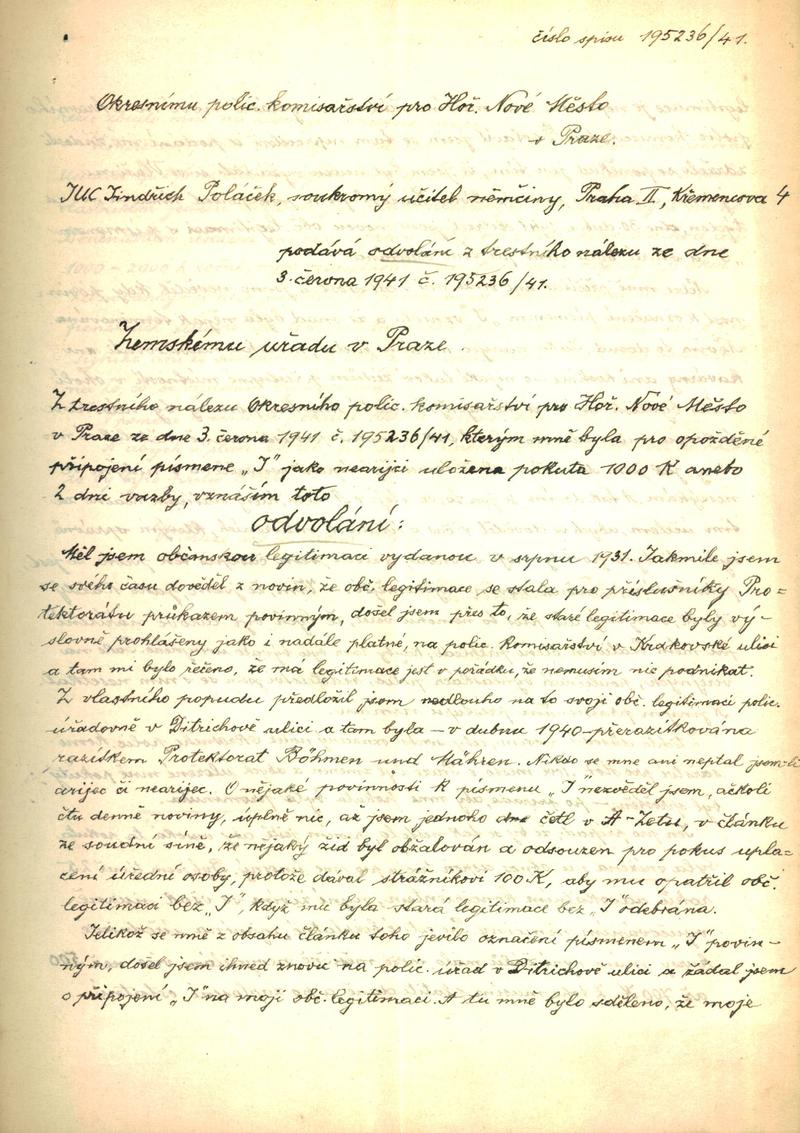 číslo spisu 195236/41.
Okresnímu polic. komisařství pro Hoř. Nové Město
v Praze.
JUC Jindřich Poláček, soukromý učitel němčiny, Praha II, Křemencova 4
podává odvolání z trestního nálezu ze dne
3. června 1941 č. 195236/41.
Zemskému úřadu v Praze.
Z trestního nálezu Okresního polic. komisařství pro Hoř. Nové Město
v Praze ze dne 3. června 1941 č. 195236/41, kterým mně byla pro opožděné
připojení písmene „J" jako nearijci uložena pokuta 1000 K anebo
2 dni vazby, vznáším toto
odvolání:
Měl jsem občanskou legitimaci vydanou v srpnu 1931. Jakmile jsem
se svého času dověděl z novin, že obč. legitimace se stala pro příslušníky Pro=
tektorátu průkazem povinným, došel jsem přes to, že staré legitimace byly vý-
slovně prohlášeny jako i nadále platné, na polic. komisařství v Krakovské ulici
a tam mi bylo řečeno, že má legitimace jest v pořádku, že nemusím nic podnikat.
Z vlastního popudu předložil jsem nedlouho na to svoji obč. legitimaci polic.
úřadovně v Ditrichově ulici a tam byla – v dubnu 1940 – přerazítkována
razítkem Protektorat Böhmen und Mähren. Nikdo se mne ani neptal jsem-li
arijec či nearijec. O nějaké povinnosti k písmenu „J" nezvěděl jsem, ačkoli
čtu denně noviny, úplně nic, až jsem jednoho dne četl v A-Zetu, v článku
ze soudní síně, že nějaký žid byl obžalován a odsouzen pro pokus upla=
cení úřední osoby, protože dával strážníkovi 100 K, aby mu opatřil obč.
legitimaci bez „J", když mu byla stará legitimace bez „J" odebrána.
Jelikož se mně z obsahu článku toho jevilo označení písmenem „J" povin-
ným, došel jsem ihned znovu na polic. úřad v Ditrichově ulici a žádal jsem
o připojení „J" na moji obč. legitimaci. A tu mně bylo sděleno, že moje